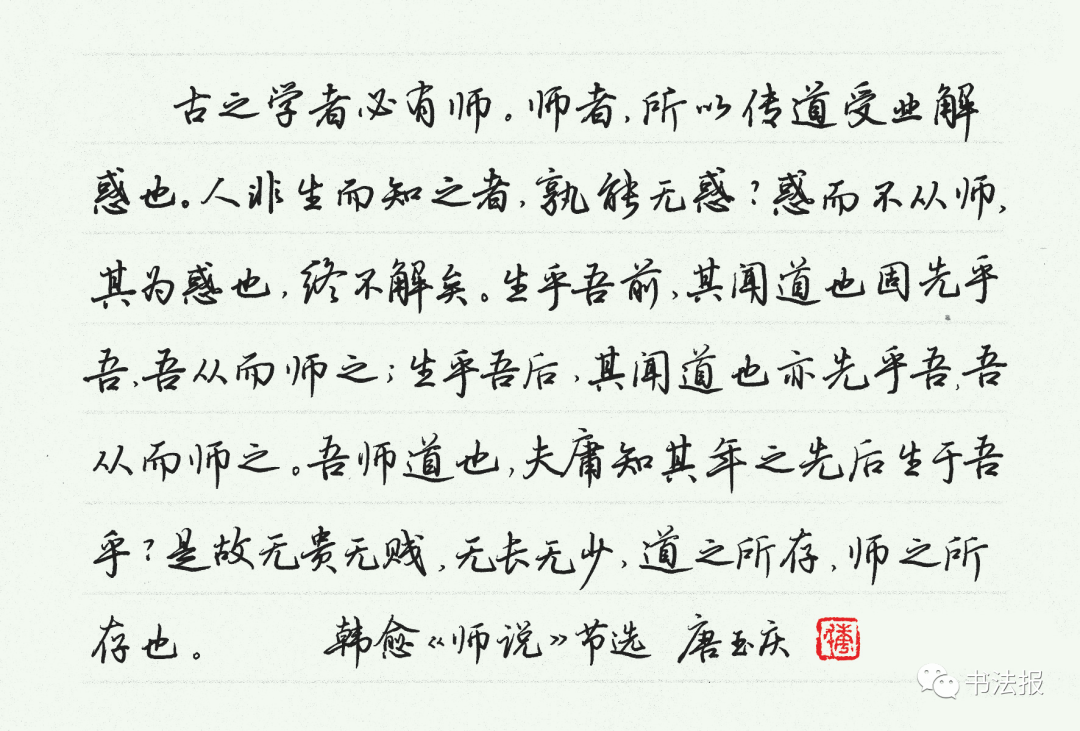 古之学者必有师。师者，所以传道受业解
惑也。人非生而知之者，孰能无惑？惑而不从师，
其为惑也，终不解矣。生乎吾前，其闻道也固先乎
吾，吾从而师之；生乎吾后，其闻道也亦先乎吾，吾
从而师之。吾师道也，夫庸知其年之先后生于吾
乎？是故无贵无贱，无长无少，道之所存，师之所
存也。 韩愈《师说》节选 唐玉庆
书法报